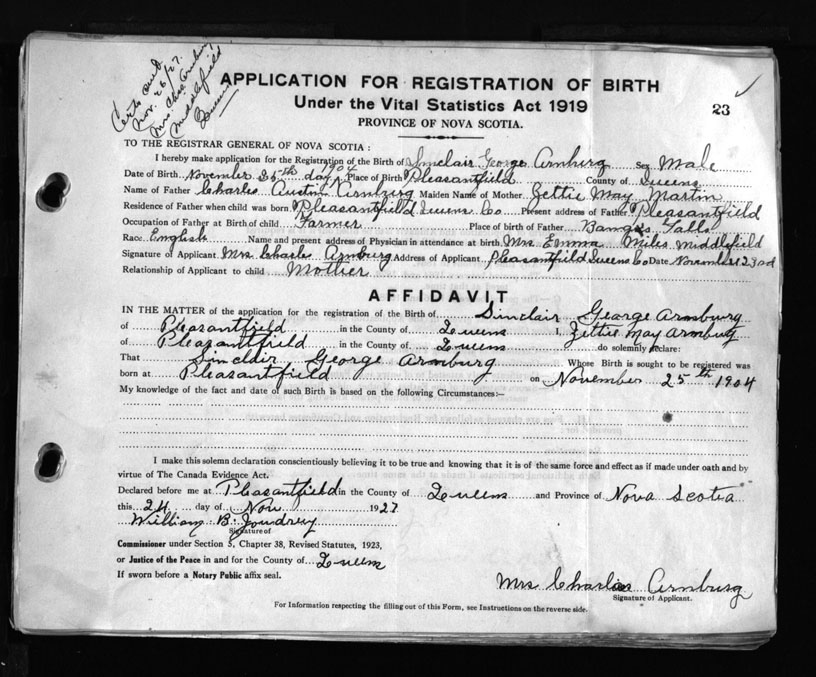 Certs sent
Nov. 26/27.
Mrs Chas Arnburg
Middlefield
Queens
APPLICATION FOR REGISTRATION OF BIRTH
Under the Vital Statistics Act 1919
PROVINCE OF NOVA SCOTIA.
23
TO THE REGISTRAR GENERAL OF NOVA SCOTIA :
I hereby make application for the Registration of the Birth of Sinclair George Arnburg Sex Male
Date of Birth November 25th day 1904 Place of Birth Pleasantfield County of Queens
Name of Father Charles Austin Arnburg Maiden Name of Mother Zettie May Martin
Residence of Father when child was born Pleasantfield Queens Co Present address of Father Pleasantfield
Occupation of Father at Birth of child Farmer Place of birth of Father Bangs Falls
Race English Name and present address of Physician in attendance at birth Mrs Emma Miles Middlefield
Signature of Applicant Mrs Charles Arnburg Address of Applicant Pleasantfield Queens Co Date November 23rd
Relationship of Applicant to child Mother
AFFIDAVIT
IN THE MATTER of the application for the registration of the Birth of Sinclair George Arnburg
of Pleasantfield in the County of Queens I, Zettie May Arnburg
of Pleasantfield in the County of Queens do solemnly declare:
That Sinclair George Arnburg Whose Birth is sought to be registered was
born at Pleasantfield on November 25th 1904
My knowledge of the fact and date of such Birth is based on the following Circumstances:—
I make this solemn declaration conscientiously believing it to be true and knowing that it is of the same force and effect as if made under oath and by
virtue of The Canada Evidence Act.
Declared before me at Pleasantfield in the County of Queens and Province of Nova Scotia
this 24 day of Nov 1927
William B. Joudrey
Signature of
Commissioner under Section 5, Chapter 38, Revised Statutes, 1923,
or Justice of the Peace in and for the County of Queens
If sworn before a Notary Public affix seal.
Mrs Charles Arnburg
Signature of Applicant.
For Information respecting the filling out of this Form, see Instructions on the reverse side.